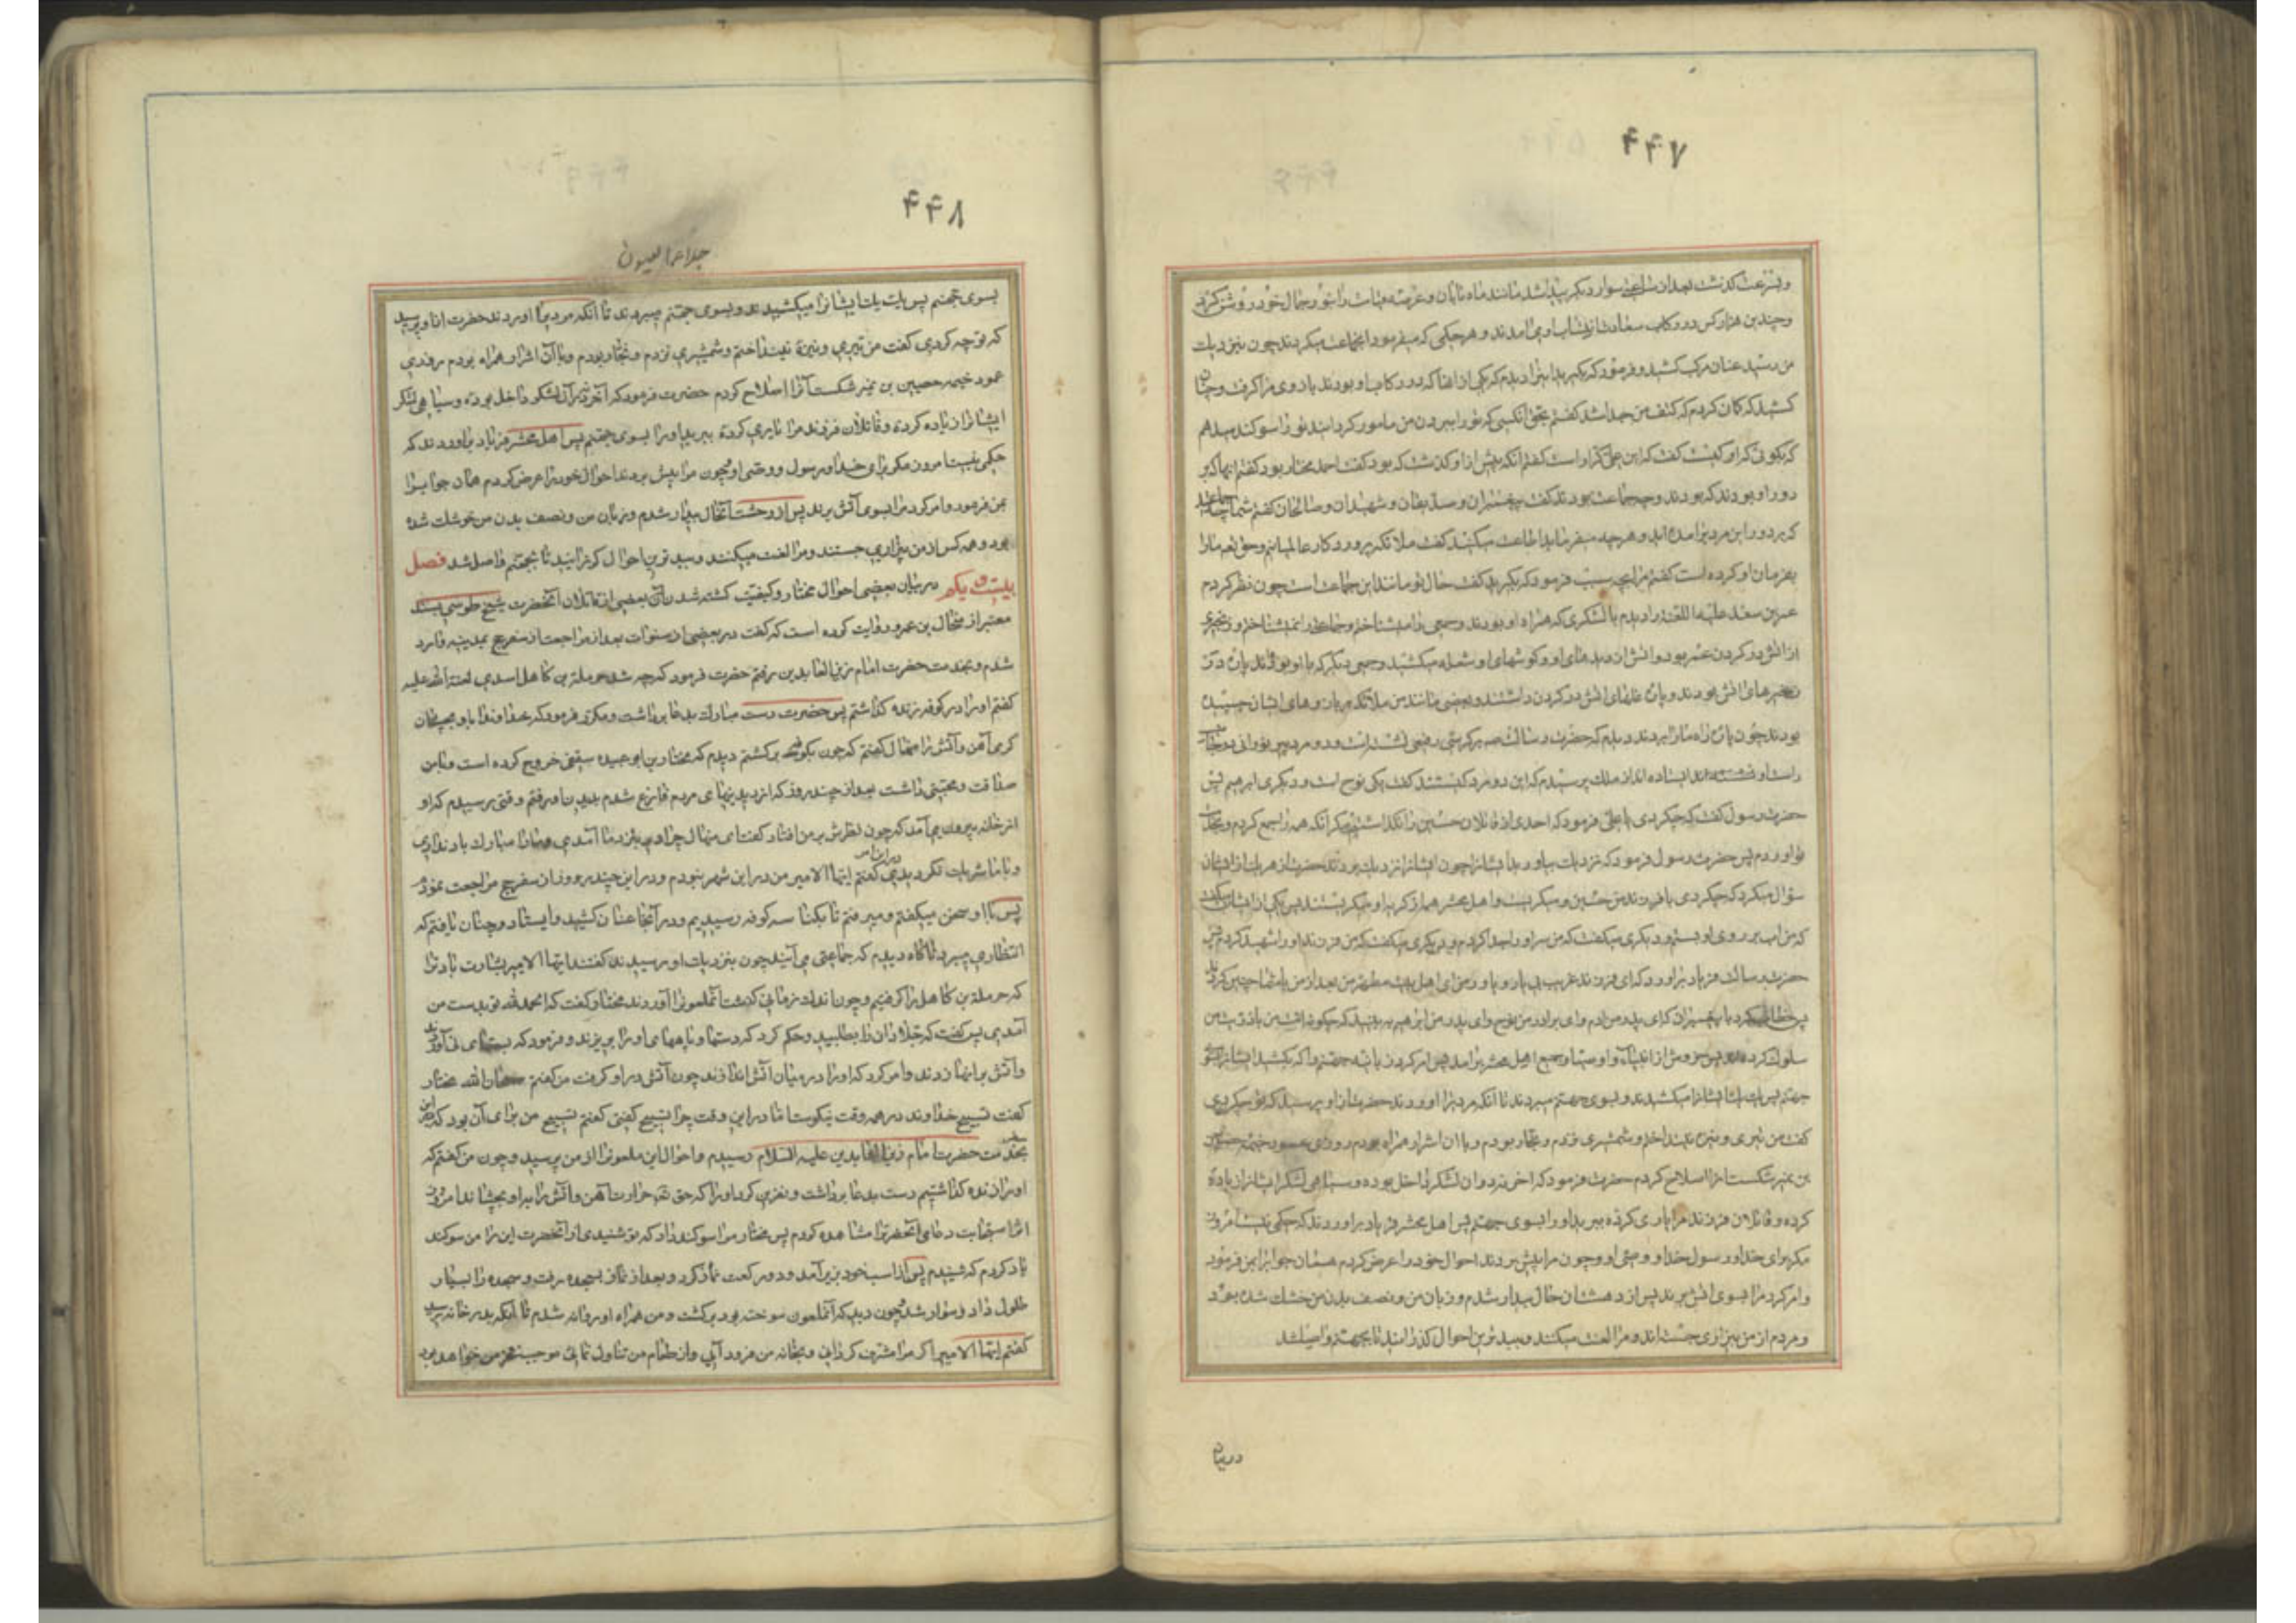 ۴۴۷
و بسرعت گذشت بعد از ساعتی سوار دیگر پیدا شد مانند ماه تابان و عرصه قیامت را بنور جمال خود روشن کرد
و چندین هزار کس در رکاب سعادت انتساب او می آمدند و هر حکمی که میفرمود انجماعت میکردند چون بنزدیک
من رسید عنان مرکب کشید و فرمود که بکیرید اینرا دیدم که یکی از انها که در رکاب او بودند بازوی مرا کرفت و چنان
کشید که کمان کردم که کتف من جدا شد کفتم بحق آنکسی که تو را ببردن من مامور کردانید تو را سوکند میدهم
که بکوئی که او کیست کفت که این علی کرار است کفتم آنکه پیش از او کذشت که بود کفت احمد مختار بود کفتم انها که بر
دور او بودند که بودند و چه جماعت بودند کفت پیغمبران و صدیقان و شهیدان و صالحان کفتم شما چه جماعتید
که بر دور این مرد برامده اید و هر چه میفرماید اطاعت میکنید کفت ملائکه پروردکار عالمیانیم و حق تعالی مارا
بفرمان او کرده است کفتم مرا بچه سبب فرمود که بکیرید کفت حال تو مانند این جماعت است چون نظر کردم
عمر بن سعد علیه اللعنه را دیدم با لشکری که همراه او بودند و جمعی را میشناختم و جماعتی را نمیشناختم و زنجیری
از اتش در کردن عمر بود و اتش از دیدهای او و کوشهای او شعله میکشید و جمعی دیکر که با او بودند پاره در
زنجیرهای اتش بودند و پاره غلهای اتش در کردن داشتند و بعضی مانند من ملائکه بر بازوهای ایشان چسبیده
بودند چون پاره راه مارا بردند دیدم که حضرت رسالت بر کرسی رفیعی نشسته است و دو مرد پیر نورانی در جانب
راست او ایستاده اند از ملک پرسیدم که این دو مرد کیستند کفت یکی نوح است و دیکری ابرهیم پس
حضرت رسول کفت که چکردی یا علی فرمود که احدی از قاتلان حسین را نکذاشتم مکر آنکه همه را جمع کردم و بخدمت
تو اوردم پس حضرت رسول فرمود که نزدیک بیاورید ایشانرا چون ایشانرا نزدیک بردند حضرت از هر یک از ایشان
سؤال میکرد که چکردی با فرزند من حسین و میکریست و اهل محشر همه از کریه او میکریستند پس یکی از ایشان میکفت
که من اب بر روی او بستم و دیکری میکفت که من سر او را جدا کردم و دیکری میکفت که من فرزند او را شهید کردم پس
حضرت رسالت فریاد براورد که ای فرزند غریب بی یار و یاور من ای اهل بیت مطهر من بعد از من با شما چنین کردند
پس خطاب کرد با پیغمبران که ای پدر من ادم و ای برادر من نوح و ای پدر من ابرهیم به بینید که چکونه امت من با ذریت من
سلوک کرده اند پس خروش از انبیاء و اوصیا و جمیع اهل محشر برامد پس امر کردند زبانیه جهنم را که بکشید ایشانرا بسوی
جهنم پس یک یک ایشانرا میکشیدند و بسوی جهنم میبردند تا آنکه مردیرا اوردند حضرت از او پرسید که تو چکردی
کفت من تیری و نیزه نینداختم و شمشیری نزدم و نجار بودم و با ان اشرار همراه بودم روزی عمود خیمه حصین
بن نمیر شکست انرا اصلاح کردم حضرت فرمود که اخر نه در ان لشکر داخل بوده و سیاهی لشکر ایشانرا زیاده
کرده و قاتلان فرزند مرا یاری کرده ببرید او را بسوی جهنم پس اهل محشر فریاد براوردند که حکمی نیست امروز
مکر برای خدا و رسول خدا و وصی او و چون مرا پیش بردند احوال خود را عرض کردم همان جوابرا بمن فرمود
و امر کرد مرا بسوی اتش برند پس از دهشت ان حال بیدار شدم و زبان من و نصف بدن من خشک شده بود
و مردم از من بیزاری جسته اند و مرا لعنت میکنند و ببدترین احوال کذرانید تا بجهنم واصل شد
دربیان
۴۴۸
جلاء العیون
بسوی جهنم پس یک یک ایشانرا میکشیدند و بسوی جهنم میبردند تا آنکه مردیرا اوردند حضرت از او پرسید
که تو چه کردی کفت من تیری و نیزه نینداختم و شمشیری نزدم و نجار بودم و با آن اشرار همراه بودم روزی
عمود خیمه حصین بن نمیر شکست آنرا اصلاح کردم حضرت فرمود که آخر نه در آن لشکر داخل بوده و سیاهی لشکر
ایشانرا زیاده کرده و قاتلان فرزند مرا یاری کرده ببرید او را بسوی جهنم پس اهل محشر فریاد براوردند که
حکمی نیست امروز مکر برای خدا و رسول و وصی او و چون مرا پیش بردند احوال خود را عرض کردم همان جوابرا
بمن فرمود و امر کرد مرا بسوی آتش برند پس از وحشت آنحال بیدار شدم و زبان من و نصف بدن من خوشک شده
بود و همه کس از من بیزاری جستند و مرا لعنت میکنند و ببدترین احوال کذرانید تا بجهنم واصل شد فصل
بیست و یکم در بیان بعضی احوال مختار و کیفیت کشته شدن بعضی از قاتلان آنحضرت شیخ طوسی بسند
معتبر از منهال بن عمرو روایت کرده است که کفت در بعضی از سنوات بعد از مراجعت از سفر حج بمدینه وارد
شدم و بخدمت حضرت امام زین العابدین رفتم حضرت فرمود که چه شد حرملة بن کاهل اسدی لعنة الله علیه
کفتم او را در کوفه زنده کذاشتم پس حضرت دست مبارک بدعا برداشت و مکرر فرمود که خداوندا باو بچشان
کرمی آهن و آتش را منهال کفت که چون بکوفه برکشتم دیدم که مختار بن ابو عبیده سقفی خروج کرده است و با من
صداقت و محبتی داشت بعد از چند روز که از دیدنیهای مردم فارغ شدم بدیدن او رفتم وقتی رسیدم که او
از خانه بیرون می آمد که چون نظرش بر من افتاد کفت ای منهال چرا دیر بنزد ما آمدی و ما را مبارک باد ندادی
و با ما شریک نکردیدی در این امر کفتم ایها الامیر من در این شهر نبودم و در این چند روز از سفر حج مراجعت نمودم
پس با او سخن میکفتم و میرفتم تا بکناسه کوفه رسیدیم و در آنجا عنان کشید و ایستاد و چنان یافتم که
انتظاری میبرد ناکاه دیدم که جماعتی می آیند چون بنزدیک او رسیدند کفتند ایها الامیر بشارت باد ترا
که حرملة بن کاهل را کرفتیم و چون اندک زمانی کذشت آنملعونرا آوردند مختار کفت که الحمد لله تو بدست من
آمدی پس کفت که جلادان را بطلبید و حکم کرد که دستها و پاهای او را بریزند و فرمود که پشتهای نی آوردند
و آتش بر انها زدند و امر کرد که او را در میان آتش اندازند چون آتش در او کرفت من کفتم سبحان الله مختار
کفت تسبیح خداوند در همه وقت نیکوست اما در این وقت چرا تسبیح کفتی کفتم تسبیح من برای آن بود که در این سفر
بخدمت حضرت امام زین العابدین علیه السلام رسیدم و احوال این ملعونرا از من پرسید و چون من کفتم که
او را زنده کذاشتیم دست بدعا برداشت و نفرین کرد او را که حق تعالی حرارت آهن و آتش را باو بچشاند امروز
اثر استجابت دعای آنحضرترا مشاهده کردم پس مختار مرا سوکند داد که تو شنیدی از آنحضرت این را من سوکند
یاد کردم که شنیدم پس از اسب خود بزیر آمد و دو رکعت نماز کرد و بعد از نماز بسجده رفت و سجده را بسیار
طول داد و سوار شد چون دید که آنملعون سوخته بود برکشت و من همراه او روانه شدم تا آنکه بدر خانه رسید
کفتم ایها الامیر اکر مرا مشرف کردانی و بخانه من فرود آیی و از طعام من تناول نمائی موجب فخر من خواهد بود